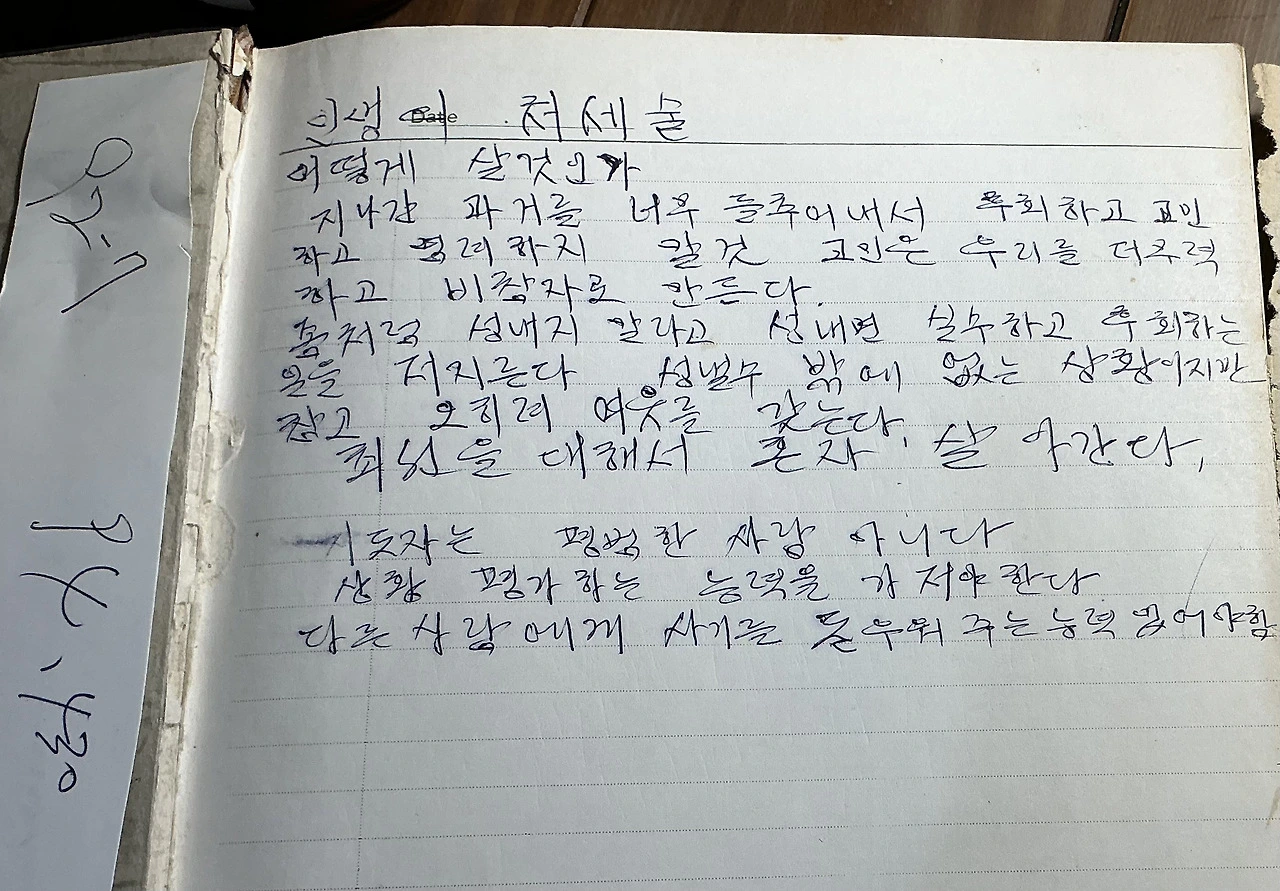 인생에 처세술
Date
어떻게 살것인가
지나간 과거를 너무 들추어내서 후회하고 고민
하고 염려하지 말것 고민은 우리를 더추력
하고 비참자로 만든다.
흠처럼 성내지 말라고 성내면 실수하고 후회하는
일을 저지른다 성낼수 밖에 없는 상황이지만
참고 오히려 여웃를 갖는다.
최선을 대해서 혼자 살아간다.
지도자는 평범한 사람 아니다
상황 평가하는 능력을 가저야한다
다른 사람에게 사기를 돋우워 주는 능력 있어야함